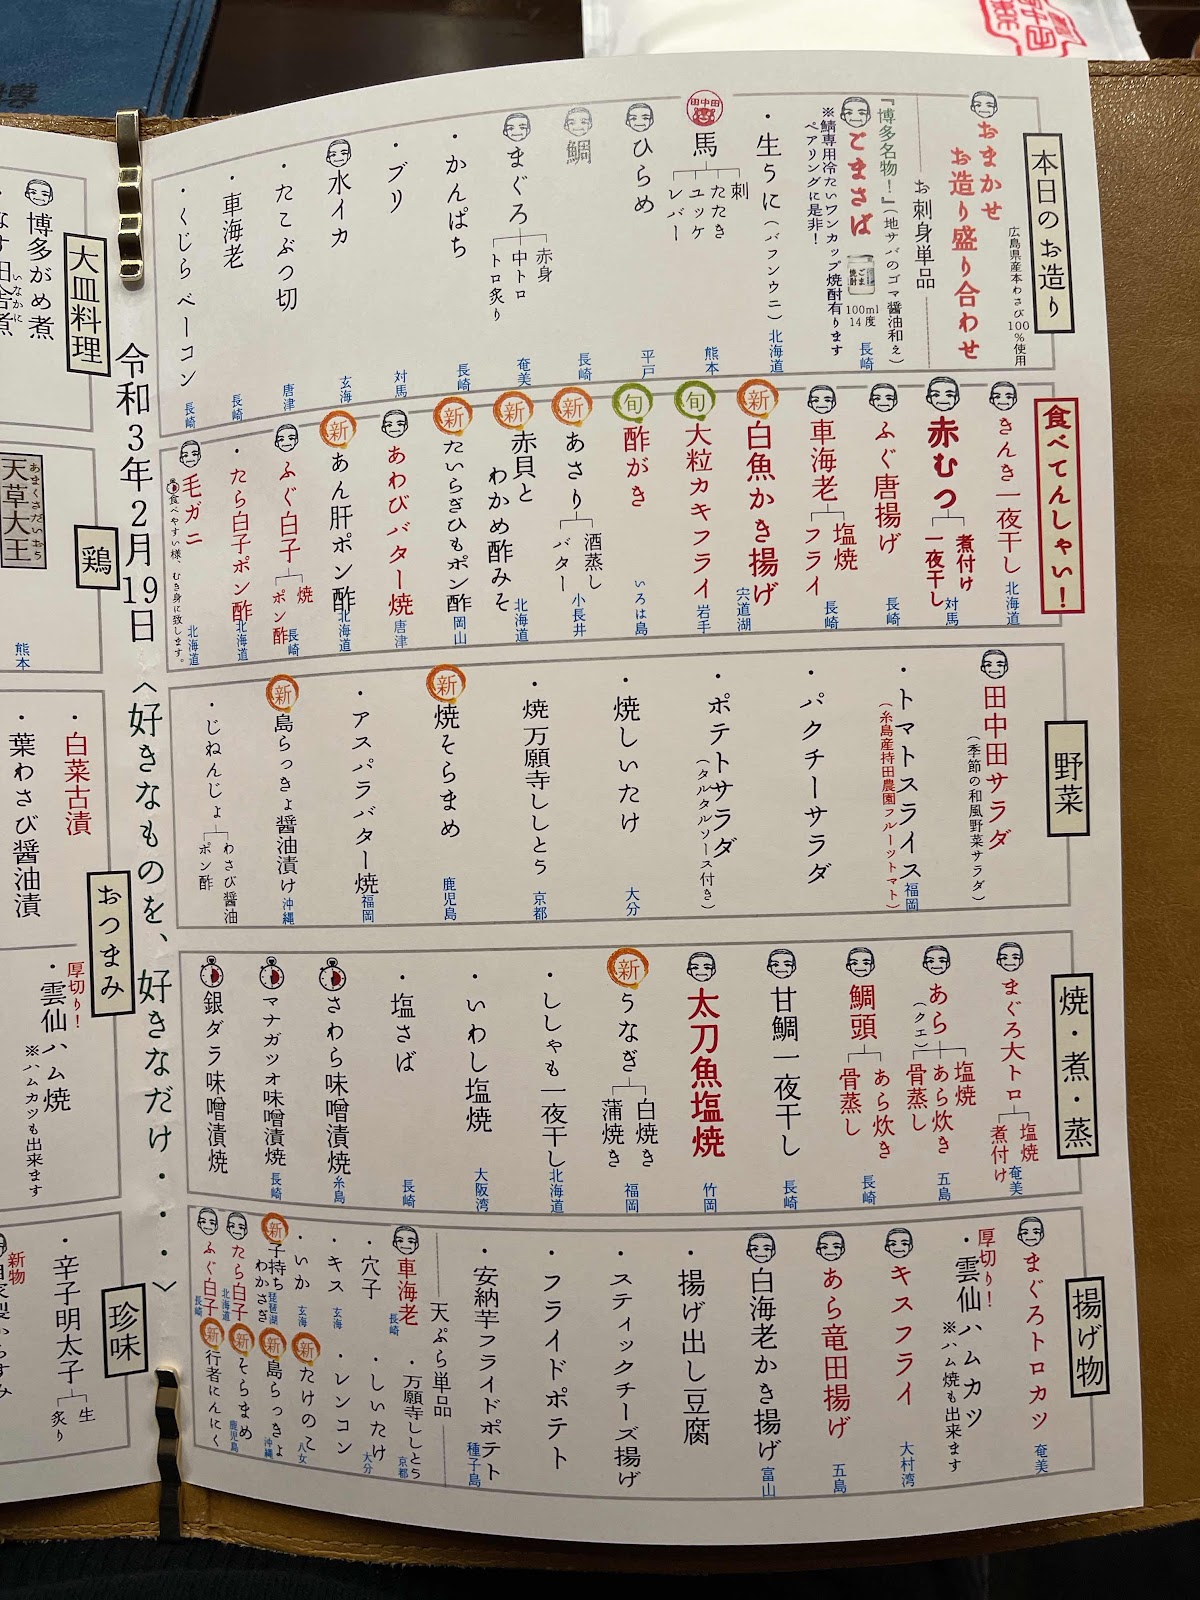 本日のお造り
おまかせ
お造り盛り合わせ
広島県産本わさび100%使用
お刺身単品
『博多名物!』(地サバのゴマ醤油和え)
ごまさば
長崎
100ml
14度
※鯖専用冷たいワンカップ焼酎有ります
ペアリングに是非!
・生うに(バフンウニ)
北海道
田中田
馬
刺
たたき
ユッケ
レバー
熊本
ひらめ
平戸
鯛
長崎
まぐろ
赤身
中トロ
トロ炙り
奄美
・かんぱち
長崎
・ブリ
対馬
水イカ
玄海
・たこぶつ切
唐津
・車海老
長崎
・くじらベーコン
長崎
食べてんしゃい!
きんき一夜干し
北海道
赤むつ
煮付け
一夜干し
対馬
ふぐ唐揚げ
長崎
車海老
塩焼
フライ
長崎
新
白魚かき揚げ
宍道湖
旬
大粒カキフライ
岩手
旬
酢がき
いろは島
新
あさり
酒蒸し
バター
小長井
新
赤貝と
わかめ酢みそ
北海道
新
たいらぎひもポン酢
岡山
あわびバター焼
唐津
新
あん肝ポン酢
北海道
ふぐ白子
焼
ポン酢
長崎
・たら白子ポン酢
北海道
毛ガニ
食べやすい様、むき身に致します。
北海道
野菜
田中田サラダ
(季節の和風野菜サラダ)
・トマトスライス
福岡
(糸島産持田農園フルーツトマト)
・パクチーサラダ
・ポテトサラダ
(タルタルソース付き)
・焼しいたけ
大分
・焼万願寺ししとう
京都
新
焼そらまめ
鹿児島
・アスパラバター焼
福岡
新
島らっきょ醤油漬け
沖縄
・じねんじょ
わさび醤油
ポン酢
焼・煮・蒸
まぐろ大トロ
塩焼
煮付け
奄美
あら
(クエ)
塩焼
あら炊き
骨蒸し
五島
鯛頭
あら炊き
骨蒸し
長崎
甘鯛一夜干し
長崎
太刀魚塩焼
竹岡
新
うなぎ
白焼き
蒲焼き
福岡
・ししゃも一夜干し
北海道
・いわし塩焼
大阪湾
・塩さば
長崎
さわら味噌漬焼
糸島
マナガツオ味噌漬焼
長崎
銀ダラ味噌漬焼
揚げ物
まぐろトロカツ
奄美
厚切り!
・雲仙ハムカツ
※ハム焼も出来ます
キスフライ
大村湾
あら竜田揚げ
五島
白海老かき揚げ
富山
・揚げ出し豆腐
・スティックチーズ揚げ
・フライドポテト
・安納芋フライドポテト
種子島
天ぷら単品
車海老
長崎
・万願寺ししとう
京都
・穴子
・しいたけ
大分
・キス
玄海
・レンコン
・いか
玄海
新
たけのこ
八女
新
子持ち
わかさぎ
琵琶湖
新
島らっきょ
沖縄
たら白子
北海道
新
そらまめ
鹿児島
ふぐ白子
長崎
新
行者にんにく
令和3年2月19日〈好きなものを、好きなだけ・・・〉
大皿料理
博多がめ煮
いなかに
鶏
天草大王
あまくさだいおう
熊本
おつまみ
・白菜古漬
・葉わさび醤油漬
厚切り!
・雲仙ハム焼
※ハムカツも出来ます
珍味
・辛子明太子
生
炙り
新物